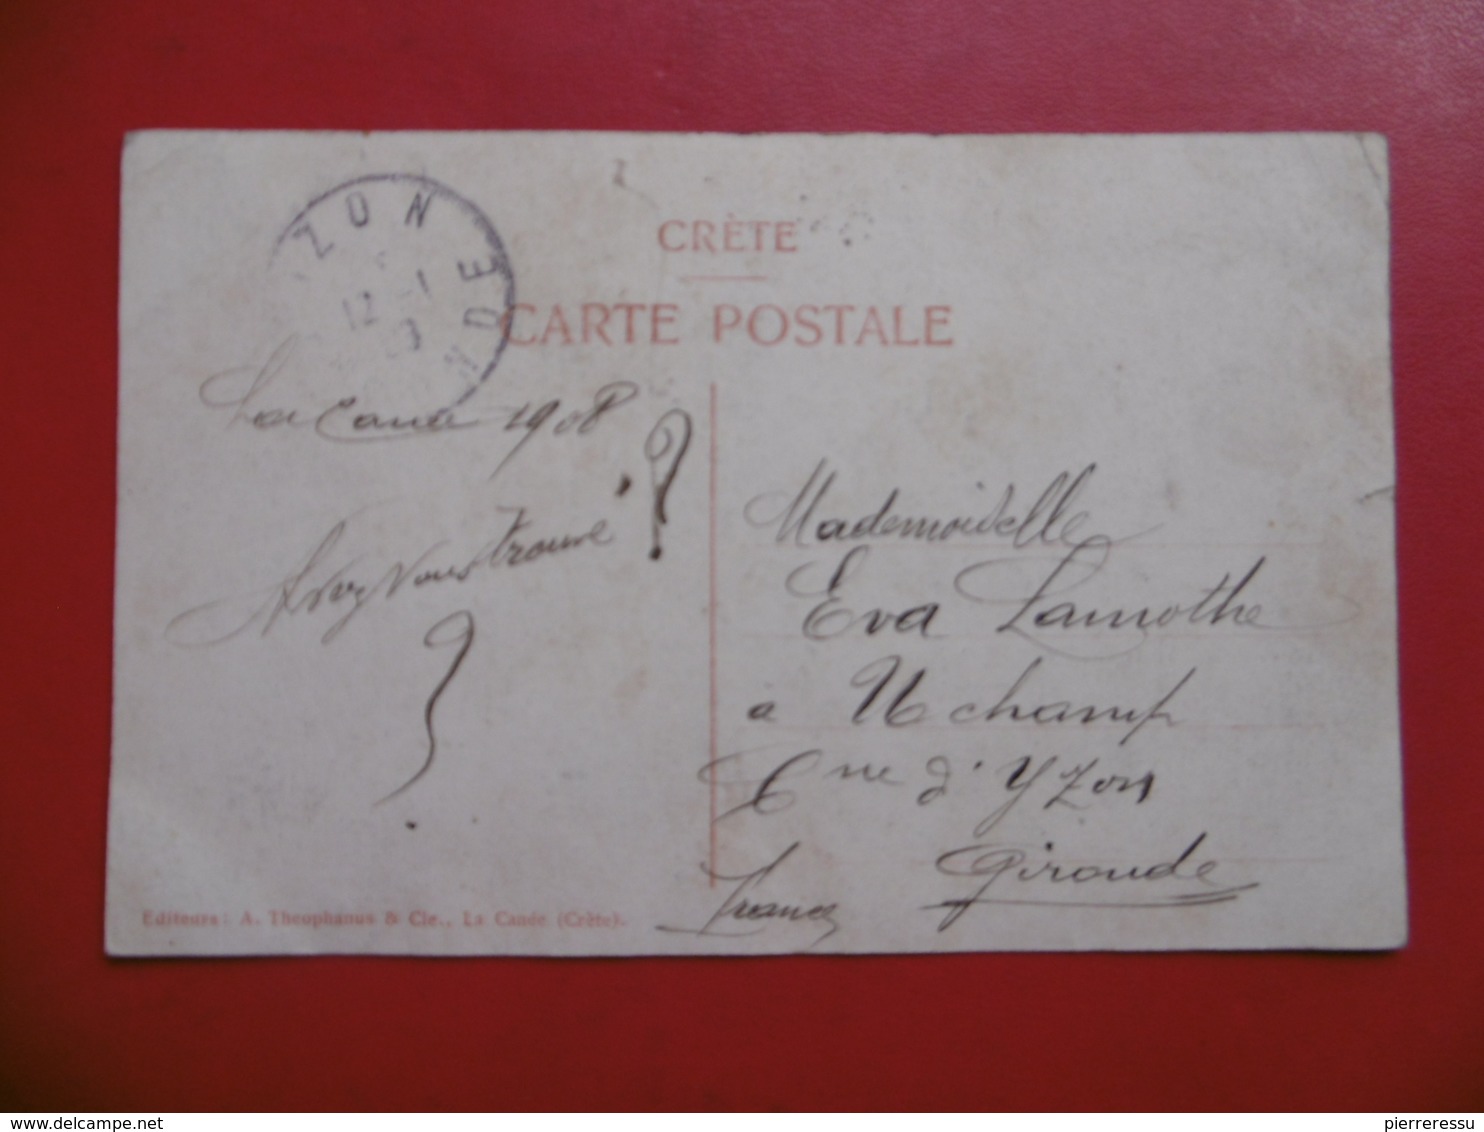 CRÈTE
CARTE POSTALE
ZON
NDE
12 -1
La Canée 1908
Avez vous trouvé ?
?
Mademoiselle
Eva Lamothe
a Uchamp
Cne d'Yzon
Gironde
France
Editeurs: A. Theophanus & Cie., La Canée (Crète).
delcampe.net
pierreressu